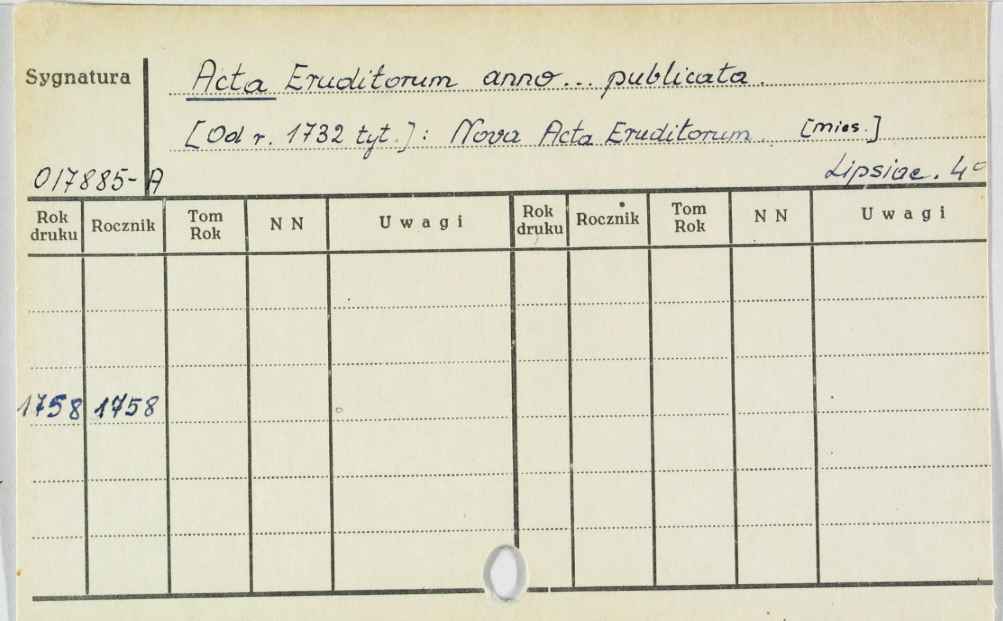 Sygnatura Acta Eruditorum anno... publicata.
[Od r. 1732 tyt.]: Nova Acta Eruditorum. [mies.]
017885-A Lipsiae. 4°
Rok druku Rocznik Tom Rok N N Uwagi Rok druku Rocznik Tom Rok N N Uwagi
1758 1758